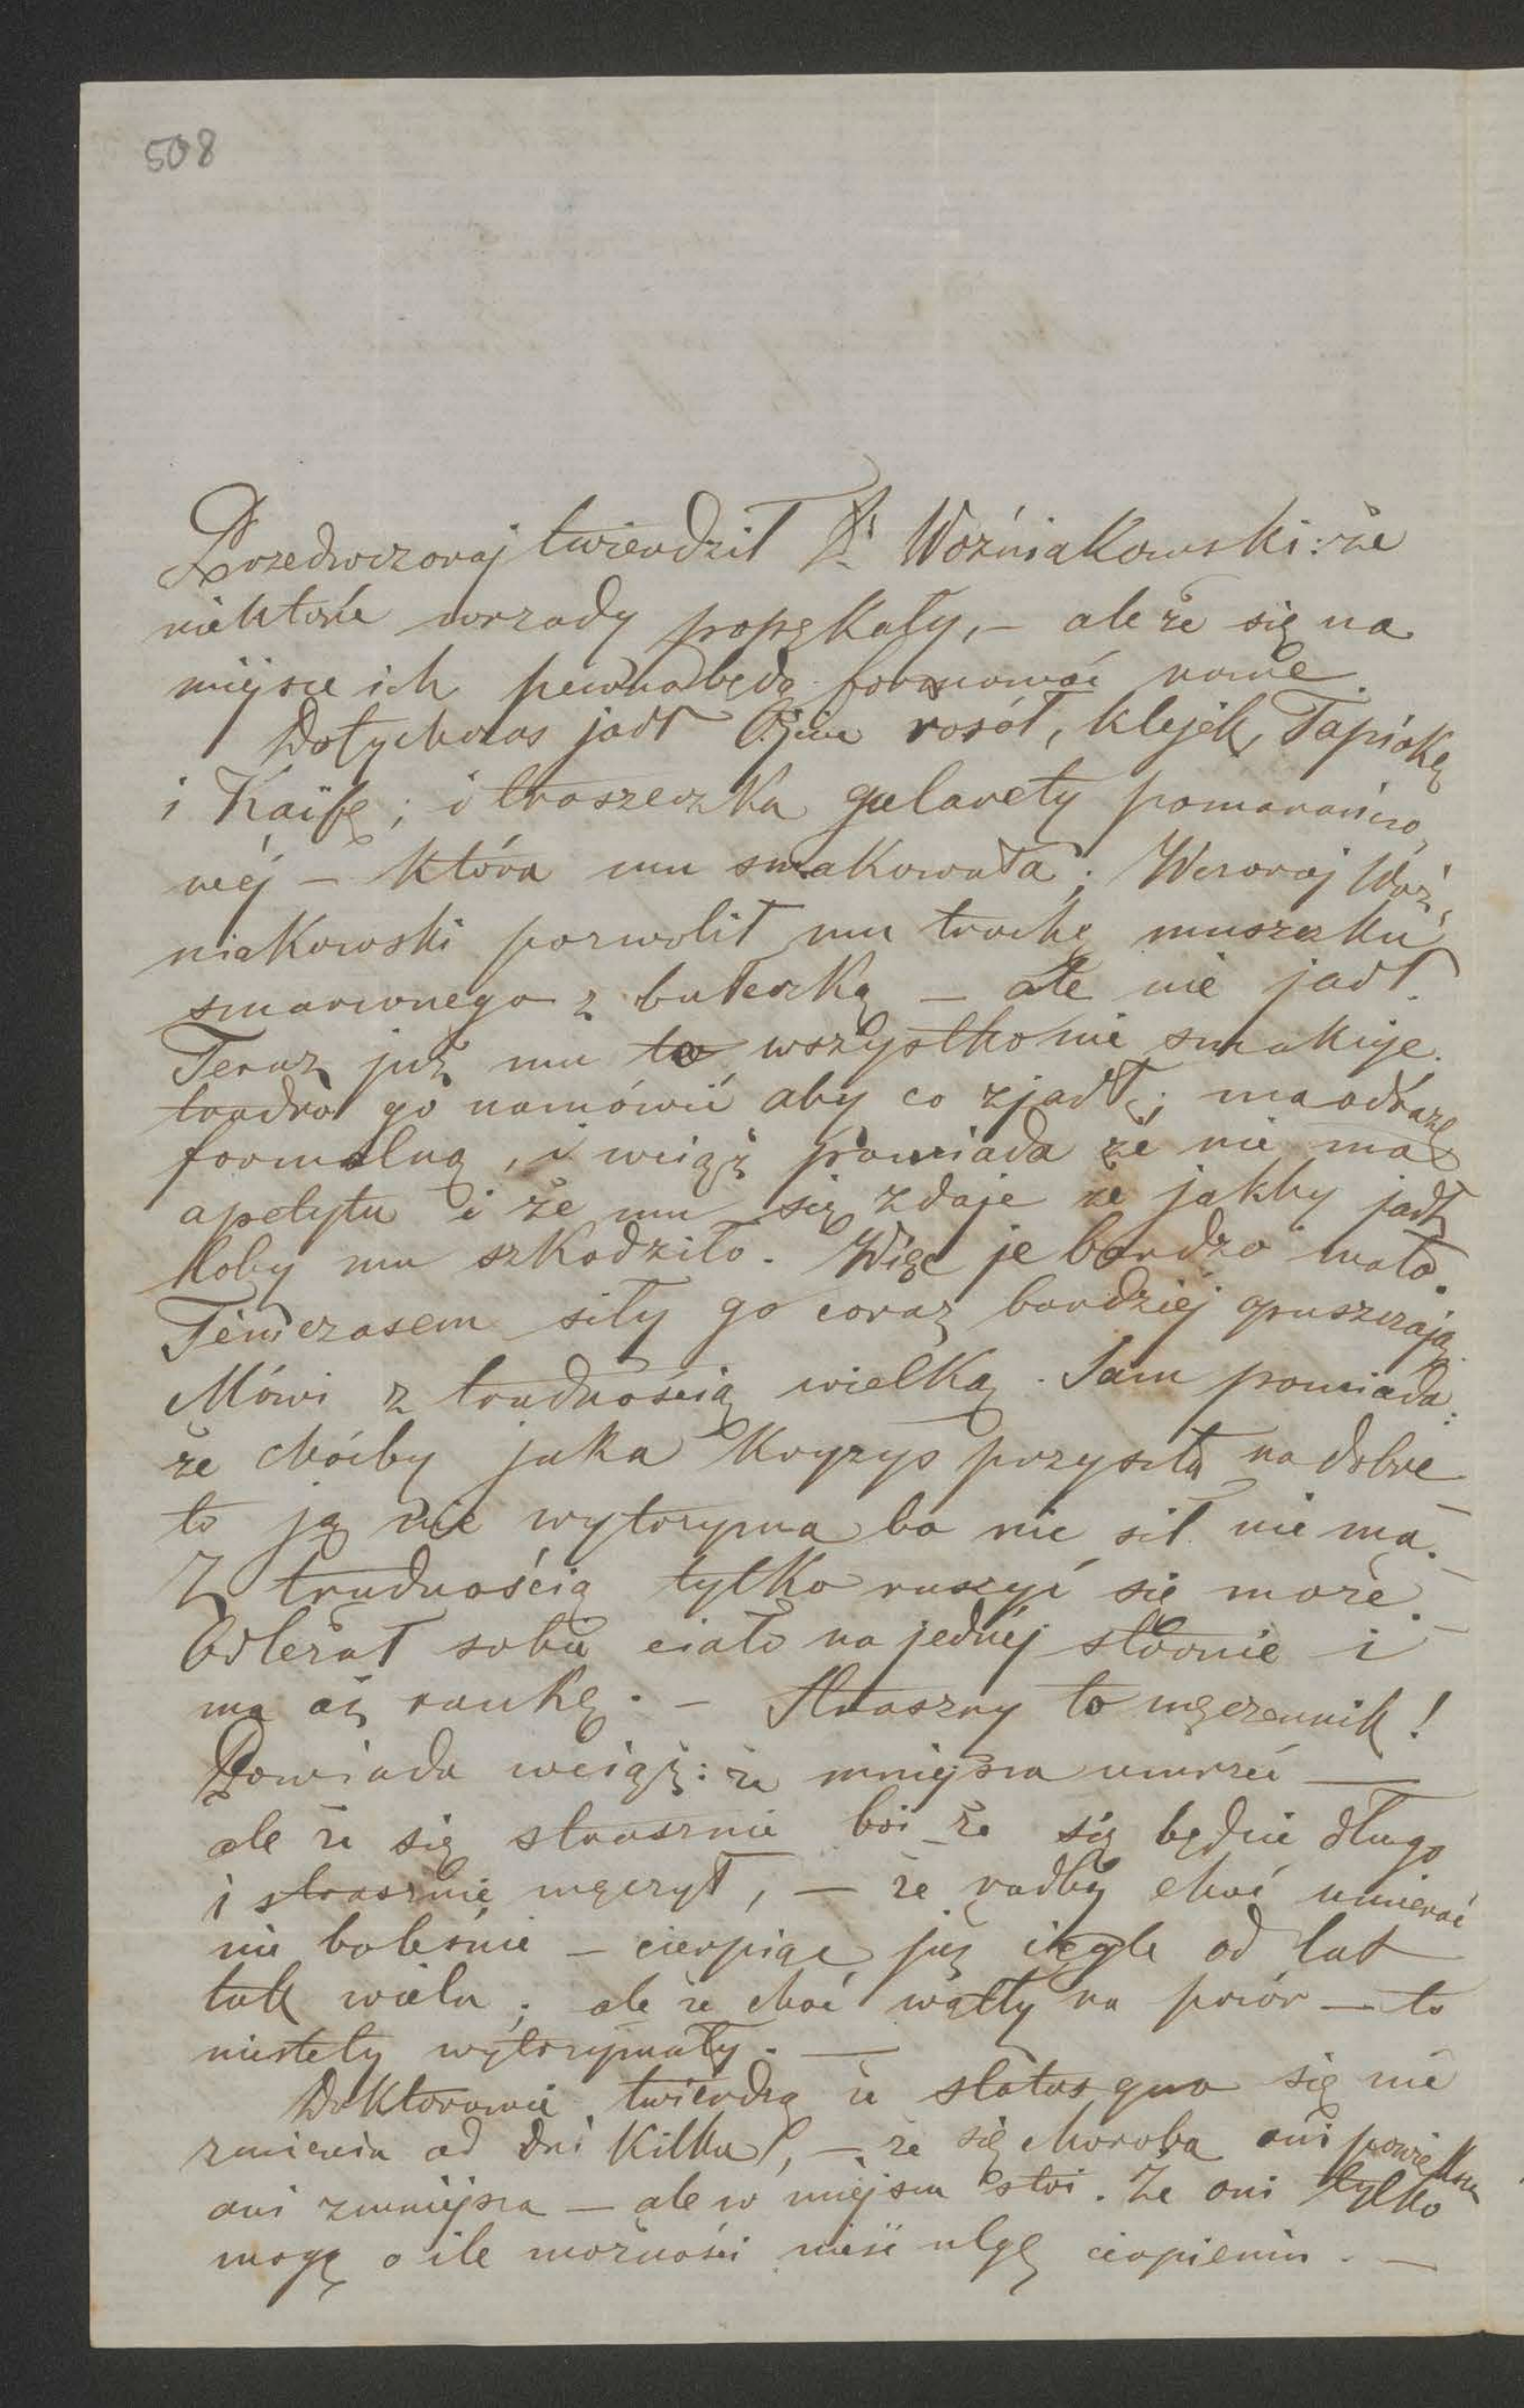 508
Przedwczoraj twierdził Dr Woźniakowski: że
niektóre wrzody popękały, – ale że się na
miejsce ich pewno będą formować nowe.
Dotychczas jadł Ojciec rosół, klejek, Tapiokę
i Kaifę; i troszeczka galarety pomarańczo
wéj – która mu smakowała; Wczoraj Woź,
niakowski pozwolił mu trochę muszczku
smarownego z bułeczką – ale nie jadł.
Teraz już mu to wszystko nie smakuje.
trudno go namówić aby co zjadł; ma odrazę
formalną, i wciąż powiada że nie ma
apetytu i że mu się zdaje że jakby jadł
toby mu szkodziło. Więc je bardzo mało.
Témczasem siły go coraz bardziéj opuszczają.
Mówi z trudnością wielką. Sam powiada:
że choćby jaka Kryzys przyszła na dobre
to ją nie wytrzyma bo nic sił nie ma. –
Z trudnością tylko ruszyć się może. –
Odleżał sobie ciało na jednéj stronie i
ma aż rankę. – Straszny to męczennik!
Powiada wciąż: że mniejsza umrzeć —
ale że się strasznie boi że się będzie długo
i strasznie męczył, – że radby choć umierać
nie boleśnie – cierpiąc już ciągle od lat
tak wielu; ale że choć wątły na pozór – to
niestety wytrzymały. —
Doktorowie twierdzą że status quo się nie
zmienia od dni kilku, – że się choroba ani powiększa
ani zmniejsza – ale w miejscu stoi. Że oni tylko
mogą o ile możności nieść ulgę cierpieniu. –